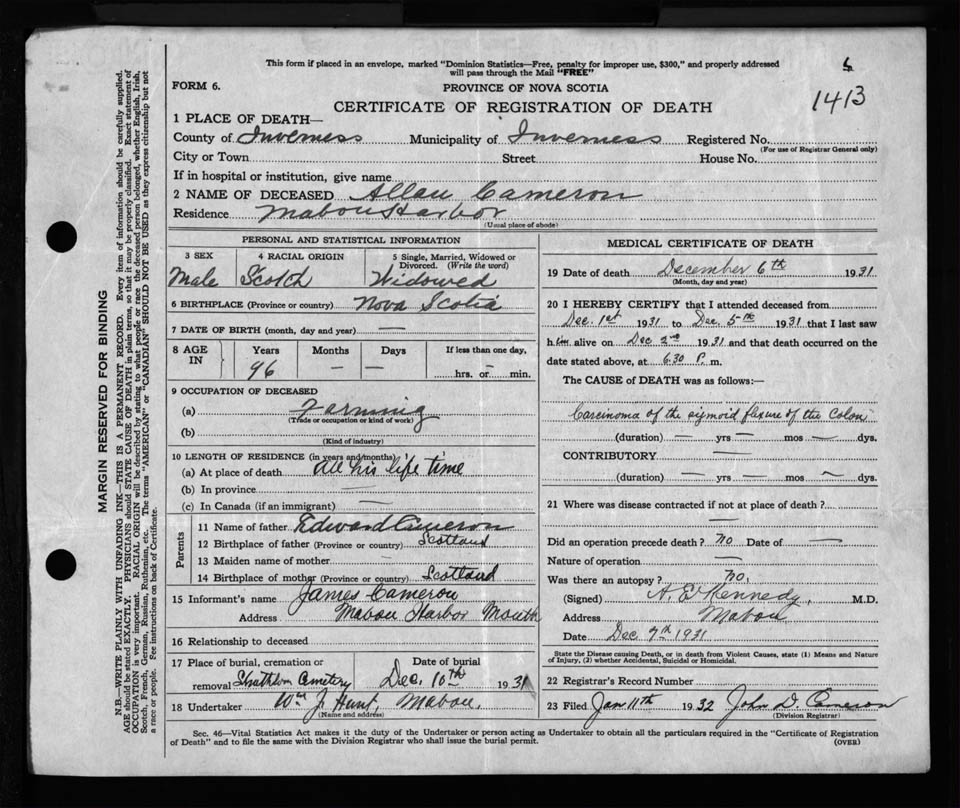 This form if placed in an envelope, marked "Dominion Statistics—Free, penalty for improper use, $300," and properly addressed
will pass through the Mail "FREE"
FORM 6.
PROVINCE OF NOVA SCOTIA
CERTIFICATE OF REGISTRATION OF DEATH
1413
1 PLACE OF DEATH—
County of Inverness Municipality of Inverness Registered No.
(For use of Registrar General only)
City or Town Street House No.
If in hospital or institution, give name
2 NAME OF DECEASED Allan Cameron
Residence Mabou Harbor
(Usual place of abode)
PERSONAL AND STATISTICAL INFORMATION
3 SEX 4 RACIAL ORIGIN 5 Single, Married, Widowed or
Divorced. (Write the word)
Male Scotch Widowed
6 BIRTHPLACE (Province or country) Nova Scotia
7 DATE OF BIRTH (month, day and year) —
8 AGE IN Years Months Days If less than one day,
96 — — hrs. or min.
9 OCCUPATION OF DECEASED
(a) Farming
(Trade or occupation or kind of work)
(b)
(Kind of industry)
10 LENGTH OF RESIDENCE (in years and months)
(a) At place of death All his life time
(b) In province
(c) In Canada (if an immigrant) —
Parents
11 Name of father Edward Cameron
12 Birthplace of father (Province or country) Scotland
13 Maiden name of mother —
14 Birthplace of mother (Province or country) Scotland
15 Informant's name James Cameron
Address Mabou Harbor Mouth
16 Relationship to deceased
17 Place of burial, cremation or Date of burial
removal Cemetery Dec. 10th 1931
18 Undertaker Wm J. Hunt, Mabou.
(Name and address)
MEDICAL CERTIFICATE OF DEATH
19 Date of death December 6th 1931
(Month, day and year)
20 I HEREBY CERTIFY that I attended deceased from
Dec. 1st 1931 to Dec. 5th 1931 that I last saw
him alive on Dec 2nd 1931 and that death occurred on the
date stated above, at 6.30 P. m.
The CAUSE of DEATH was as follows:—
Carcinoma of the sigmoid flexure of the Colon
(duration) — yrs — mos — dys.
CONTRIBUTORY —
(duration) — yrs — mos — dys.
21 Where was disease contracted if not at place of death?
—
Did an operation precede death? No Date of —
Nature of operation —
Was there an autopsy? No.
(Signed) A. E. Kennedy, M.D.
Address Mabou
Date Dec. 7th 1931
State the Disease causing Death, or in death from Violent Causes, state (1) Means and Nature
of Injury, (2) whether Accidental, Suicidal or Homicidal.
22 Registrar's Record Number
23 Filed Jan 11th 1932 John D. Cameron
(Division Registrar)
Sec. 46—Vital Statistics Act makes it the duty of the Undertaker or person acting as Undertaker to obtain all the particulars required in the "Certificate of Registration
of Death" and to file the same with the Division Registrar who shall issue the burial permit.
(OVER)
MARGIN RESERVED FOR BINDING
N.B.—WRITE PLAINLY WITH UNFADING INK—THIS IS A PERMANENT RECORD. Every item of information should be carefully supplied.
AGE should be stated EXACTLY. PHYSICIANS should STATE CAUSE OF DEATH in plain terms, so that it may be properly classified. Exact statement of
OCCUPATION is very important. RACIAL ORIGIN will be described by stating to what people or race the deceased person belonged, whether English, Irish,
Scotch, French, German, Russian, Ruthenian, etc. The terms "AMERICAN" or "CANADIAN" SHOULD NOT BE USED as they express citizenship but not
a race or people. See instructions on back of Certificate.